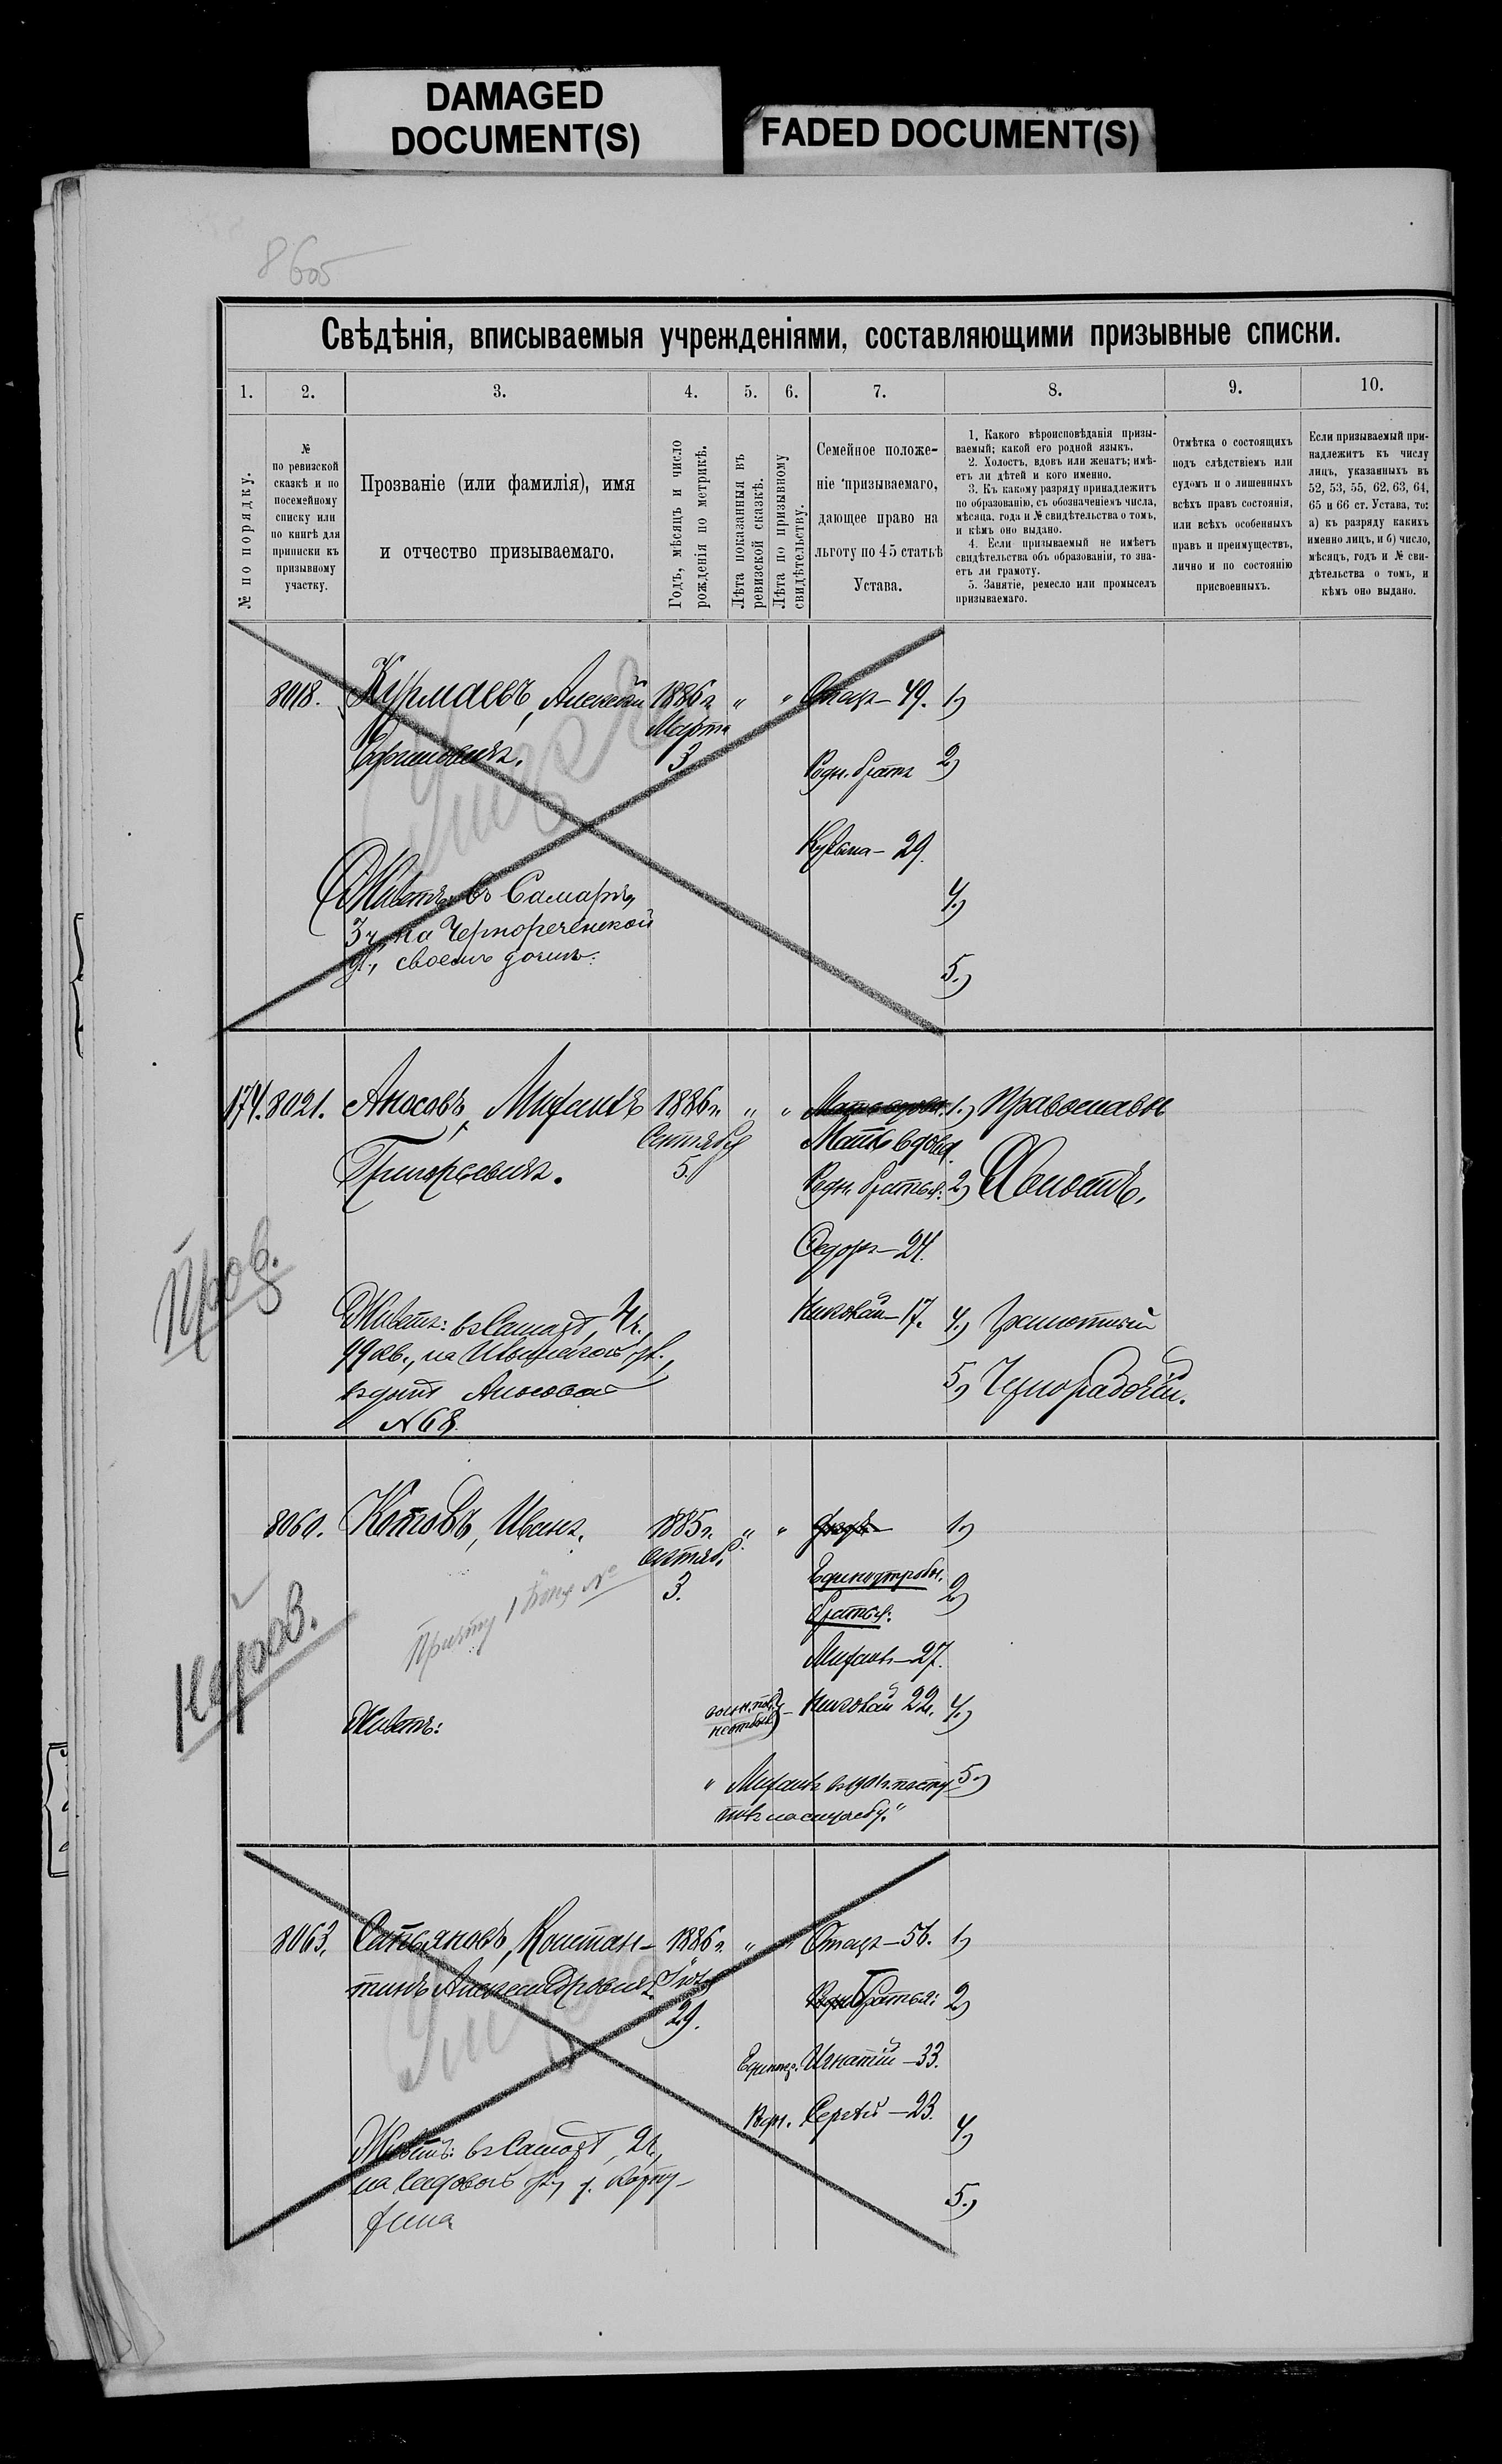 DAMAGED
DOCUMENT(S)
FADED DOCUMENT(S)
Свѣдѣнія, вписываемыя учрежденіями, составляющими призывные списки.
1.
2.
3.
4.
5.
6.
7.
8.
9.
10.
№ по порядку.
№
по ревизской
сказкѣ и по
посемейному
списку или
по книгѣ для
приписки къ
призывному
участку.
Прозваніе (или фамилія), имя
и отчество призываемаго.
Годъ, мѣсяцъ и число
рожденія по метрикѣ.
Лѣта показанныя въ
ревизской сказкѣ.
Лѣта по призывному
свидѣтельству.
Семейное положе-
ніе призываемаго,
дающее право на
льготу по 45 статьѣ
Устава.
1. Какого вѣроисповѣданія призы-
ваемый; какой его родной языкъ.
2. Холостъ, вдовъ или женатъ; имѣ-
етъ ли дѣтей и кого именно.
3. Къ какому разряду принадлежитъ
по образованію, съ обозначеніемъ числа,
мѣсяца, года и № свидѣтельства о томъ,
и кѣмъ оно выдано.
4. Если призываемый не имѣетъ
свидѣтельства объ образованіи, то зна-
етъ ли грамоту.
5. Занятіе, ремесло или промыселъ
призываемаго.
Отмѣтка о состоящихъ
подъ слѣдствіемъ или
судомъ и о лишенныхъ
всѣхъ правъ состоянія,
или всѣхъ особенныхъ
правъ и преимуществъ,
лично и по состоянію
присвоенныхъ.
Если призываемый при-
надлежитъ къ числу
лицъ, указанныхъ въ
52, 53, 55, 62, 63, 64,
65 и 66 ст. Устава, то:
а) къ разряду какихъ
именно лицъ, и б) число,
мѣсяцъ, годъ и № сви-
дѣтельства о томъ, и
кѣмъ оно выдано.
8018. Курмаевъ, Алексѣй 1886 г. " " Отецъ – 49. 1)
Марта
Ефимовичъ. 3 Родн. братъ 2)
Кузьма – 29.
Живетъ: въ Самарѣ, 4)
3 ч., на Чернореченской
ул., своемъ домѣ. 5)
174. 8021. Аносовъ, Михаилъ 1886 г. " " 1) Православн
Сентября Мать вдова.
Григорьевичъ. 5. Родн. братья: 2) Холостъ.
Федоръ – 24.
Пров.
Живетъ: въ Самарѣ, 4 ч., Николай – 17. 4) Грамотный
99 кв., на ул.,
въ домѣ Аносова 5) Чернорабочій.
№ 68.
8060. Котовъ, Иванъ. 1885 г. " " 1)
Октяб.
3. Единоутробн. 2)
братья:
Михаилъ – 27.
Николай 22. 4)
Живетъ:
" Михаилъ въ посту 5)
пилъ на службу."
8063. Константинъ Александровичъ 1886 г. " " Отецъ – 56. 1)
29. Братья: 2)
Игнатій – 33.
Родн. Сергѣй – 23. 4)
Живетъ: въ Самарѣ, 2 ч.,
на Садовой ул., д. 5)